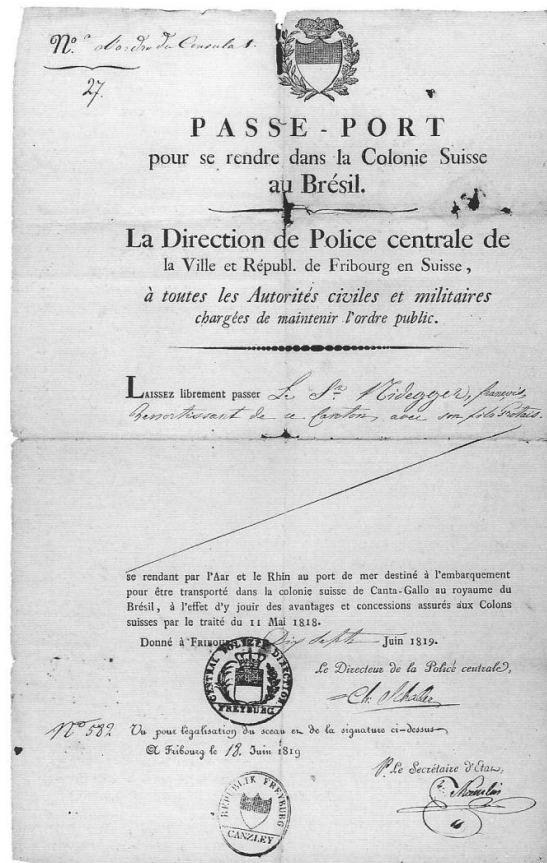 N.º d'ordre du Consulat.
27.
PASSE-PORT
pour se rendre dans la Colonie Suisse
au Brésil.
La Direction de Police centrale de
la Ville et Républ. de Fribourg en Suisse,
à toutes les Autorités civiles et militaires
chargées de maintenir l'ordre public.
LAISSEZ librement passer Le Sr. Nidegger, françois,
Ressortissant de ce Canton, avec son fils Protais.
se rendant par l'Aar et le Rhin au port de mer destiné à l'embarquement
pour être transporté dans la colonie suisse de Canta-Gallo au royaume du
Brésil, à l'effet d'y jouir des avantages et concessions assurés aux Colons
suisses par le traité du 11 Mai 1818.
Donné à Fribourg Dix septe Juin 1819.
CENTRAL POLIZEY DIRECTION
FREYBURG
Le Directeur de la Police centrale,
Ch. Schaller
Nº 582 Vu pour légalisation du sceau et de la signature ci-dessus
A Fribourg le 18. Juin 1819
Pr. Le Secrétaire d'Etat,
REPUBLIK FREYBURG
CANZLEY